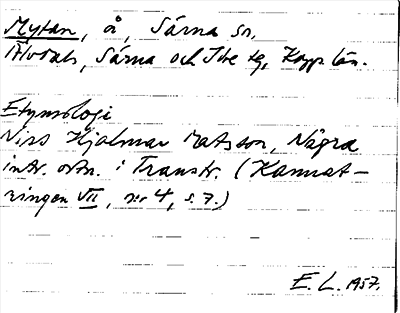 Mytan, å, Särna sn.
Älvdals, Särna och Idre tg, Kopp. län.
Etymologi
Nils Hjalmar Matsson, Några
intr. ortn. i Transtr. (Kamrat-
ringen VII, nr 4, s. 7.)
E. L. 1957.